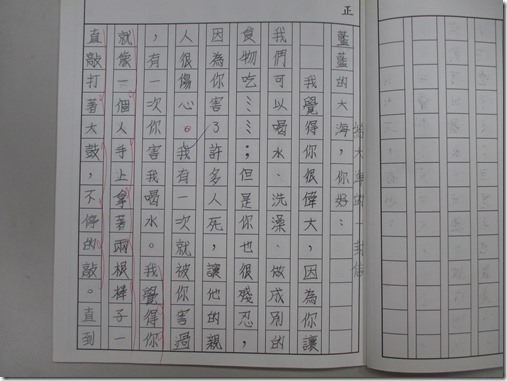 正
給大海的一封信
藍藍的大海，你好：
我覺得你很偉大，因為你讓
我們可以喝水、洗澡、做成別的
食物吃……；但是你也很殘忍，
因為你害了許多人死，讓他的親
人很傷心。我有一次就被你害過
，有一次你害我喝水。我覺得你
就像一個人手上拿著兩根棒子一
直敲打著太鼓，不停的敲。直到